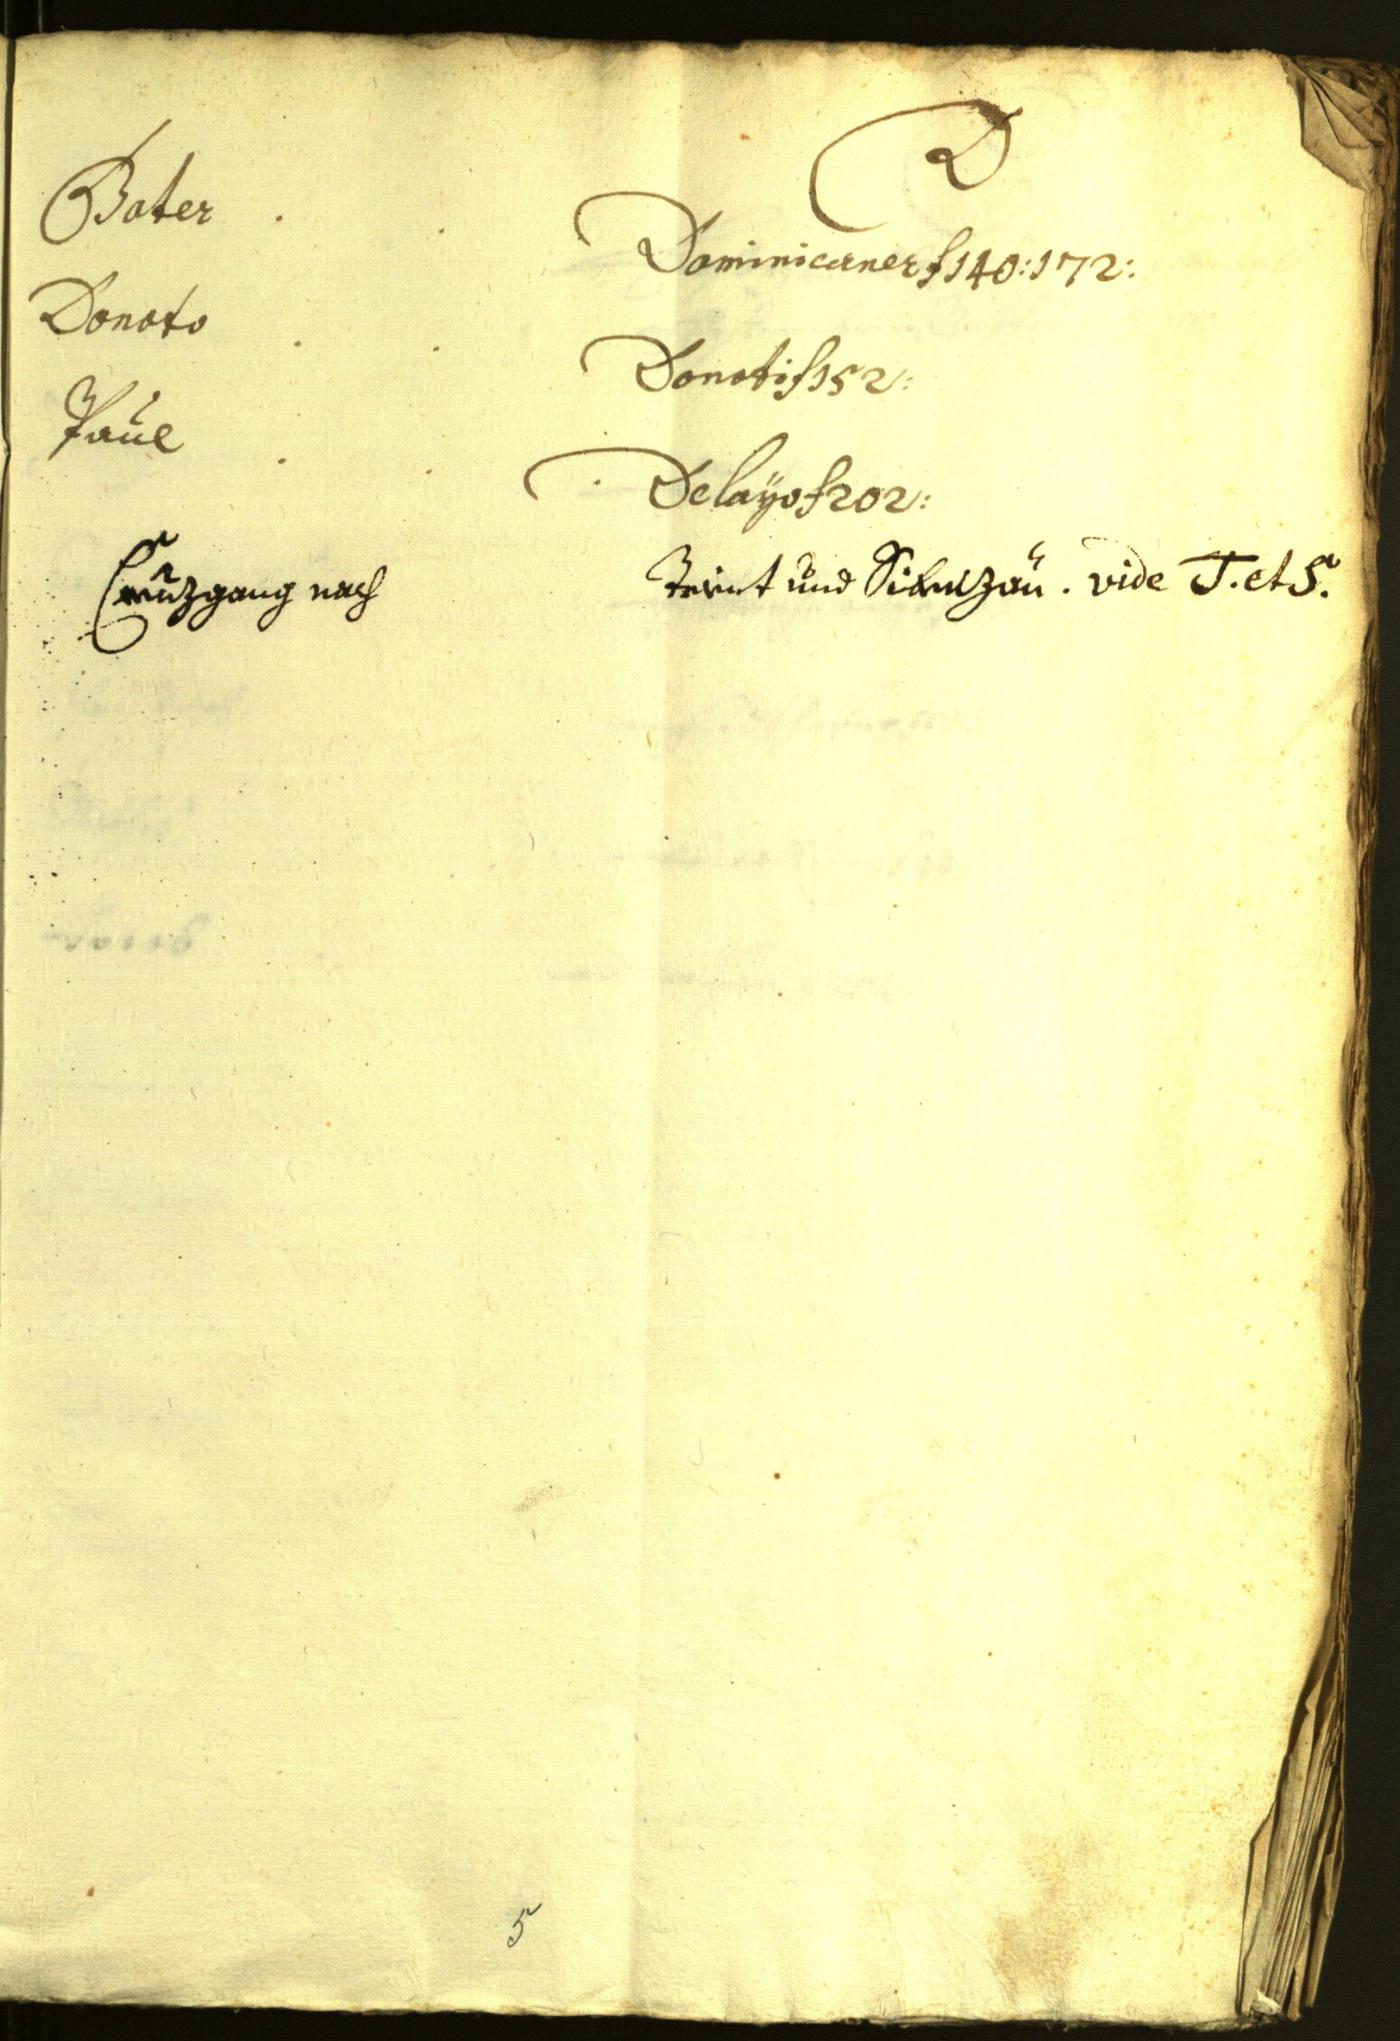 D
Pater . . Dominicaner f 140: 172:
Donato . . Donati f 152:
Paul . . Delaÿo f 202:
Creützgang nach Trient und Säbenzaü. vide T. et S.
5